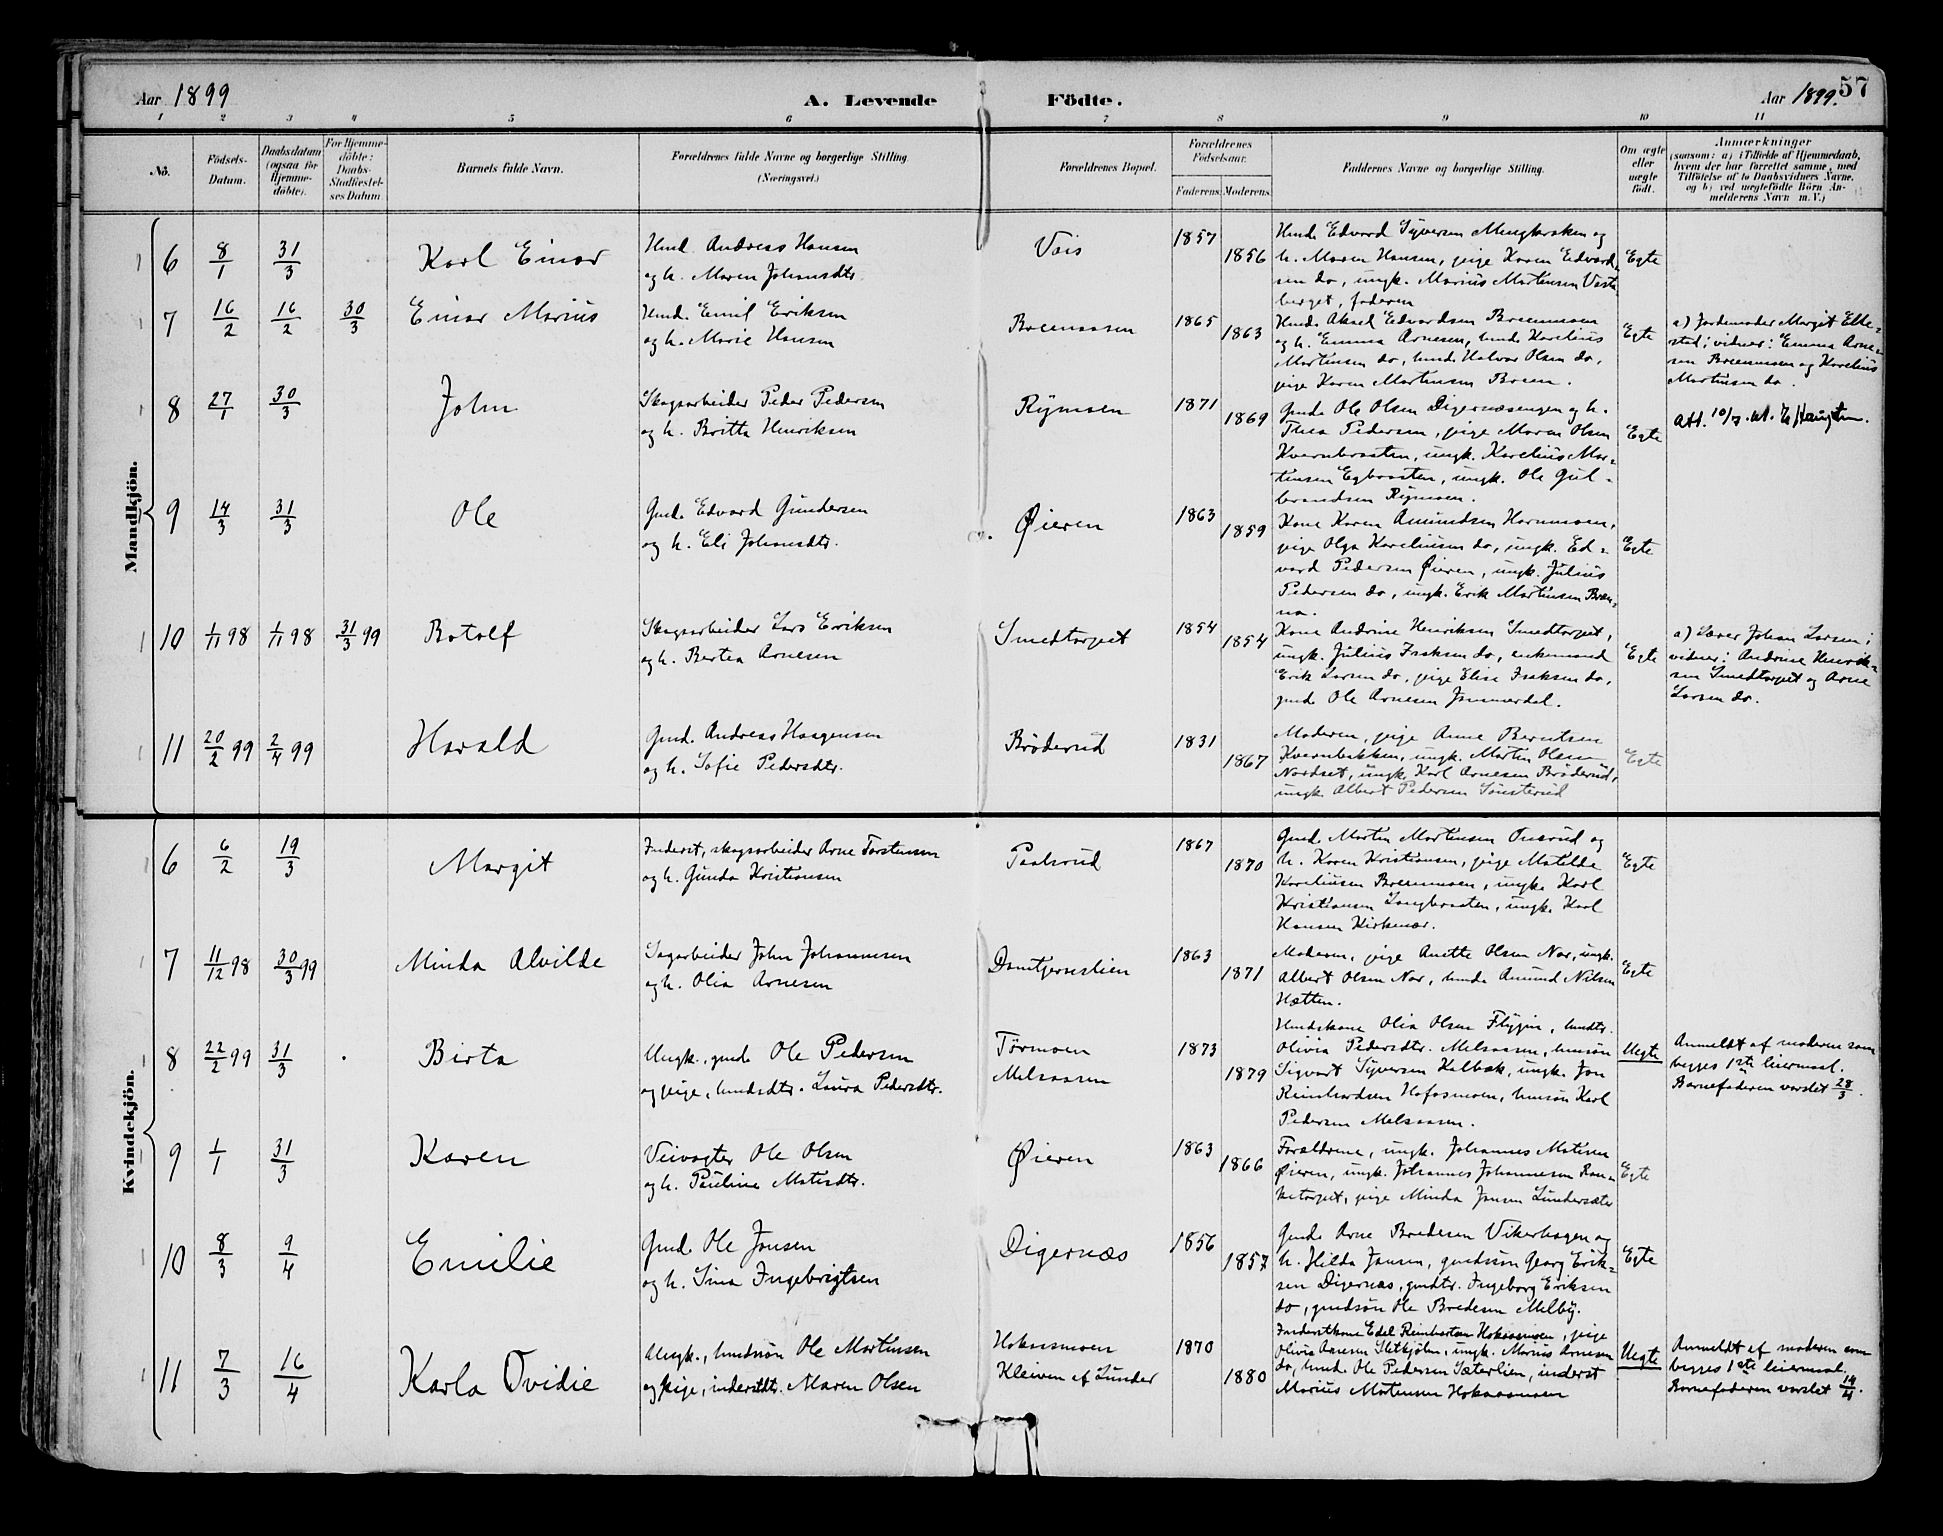 Aar 1899
A. Levende Födte.
Aar 1899.
57
1 2 3 4 5 6 7 8 9 10 11
Nö.
Födsels-
Datum.
Daabsdatum
(ogsaa for
Hjemme-
döbte).
For Hjemme-
döbte:
Daabs-
Stadfæstel-
ses Datum
Barnets fulde Navn.
Forældrenes fulde Navne og borgerlige Stilling
(Næringsvei.)
Forældrenes Bopæl.
Forældrenes
Födselsaar.
Faderens. Moderens.
Faddernes Navne og borgerlige Stilling.
Om ægte
eller
uægte
födt.
Anmærkninger
(saasom: a) i Tilfælde af Hjemmedaab,
hvem der har forrettet samme, med
Tilföielse af to Daabsvidners Navne,
og b) ved uægtefödte Börn An-
melderens Navn m. V.)
Mandkjön.
6 8/1 31/3 Karl Einar
Husd. Andreas Hansen
og h. Maren Johansdtr.
Vois
1857
1856
Husd. Edvard Syversen Mengkroken og
h. Maren Hansen, pige Karen Edvard-
sen do, ungk. Marius Martensen Vesta
berget, faderen
Egte
7 16/2 16/2 30/3 Einar Marius
Husd. Emil Eriksen
og h. Marie Hansen
Braenaasen
1865
1863
Husd. Aksel Edvardsen Braenmoen
og h. Emma Arnesen, husd. Karelius
Martinsen do, husd. Halvor Olsen do,
pige Karen Martinsen Braen.
Egte
a) Jordemoder Margit Elle-
stad; vidner: Emma Arne-
sen Braenmoen og Karelius
Martinsen do.
8 27/1 30/3 John
Skogsarbeider Peder Pedersen
og h. Britta Henriksen
Rymoen
1871
1869
Gmd. Ole Olsen Digernæsengen og h.
Thea Pedersen, pige Maren Olsen
Kvernbraaten, ungk. Karelius Mar-
tinsen Egbraaten, ungk. Ole Gul-
brandsen Rymoen.
Egte
Att. 10/7
9 14/3 31/3 Ole
Gmd. Edvard Gundersen
og h. Eli Johansdtr.
Øieren
1863
1859
Kone Karen Amundsen Hornmoen,
pige Olga Kareliusen do, ungk. Ed-
vard Pedersen Øieren, ungk. Julius
Pedersen do, ungk. Erik Martinsen Bræn-
na.
Egte
10 1/11 98 1/11 98 31/3 99 Botolf
Skogsarbeider Lars Eriksen
og h. Bertea Arnesen
Smedtorpet
1854
1854
Kone Andrine Henriksen Smedtorpet,
ungk. Julius Isaksen do, enkemand
Erik Larsen do, pige Elise Isaksen do,
gmd Ole Arnesen Jammerdal.
Egte
a) Lærer Johan Larsen;
vidner: Andrine Henrik-
sen Smedtorpet og Arne
Larsen do.
11 20/2 99 2/4 99 Harald
Gmd. Andreas Haagensen
og h. Sofie Pedersdtr.
Brøderud
1831
1867
Moderen, pige Anne Berntsen
Kvernbakken, ungk. Martin Olsen
Nordset, ungk. Karl Arnesen Brøderud,
ungk. Albert Pedersen Sønsterud
Egte
Kvindekjön.
6 6/2 19/3 Margit
Inderst, skogsarbeider Arne Torstensen
og h. Gunda Kristiansen
Paalsrud
1867
1870
Gmd. Martin Martinsen Opsrud og
h. Karen Kristiansen, pige Matilde
Kareliusen Braenmoen, ungk. Karl
Kristiansen Langbraaten, ungk. Karl
Hansen Kirkenær.
Egte
7 11/12 98 30/3 99 Minda Alvilde
Sagarbeider John Johannesen
og h. Olia Arnesen
Damtjernslien
1863
1871
Moderen, pige Anette Olsen Nor, ungk.
Albert Olsen Nor, husd. Amund Nilsen
Hætten.
Egte
8 22/2 99 31/3 Birta
Ungk., gmds. Ole Pedersen
og pige, husmdsdtr. Laura Pedersdtr.
Tørmoen
Melsaasen
1873
1879
Husdskone Olia Olsen Flygin, husdtr.
Olivia Pedersdtr. Melsaasen, hussøn
Sigvart Syversen Kalbæk, ungk. Jon
Reinhardsen Hofosmoen, husøn Karl
Pedersen Melsaasen.
Uegte
Anmeldt af moderen som
begges 1ste leiermaal.
Barnefaderen varslet 28/3.
9 1/1 31/3 Karen
Veivogter Ole Olsen
og h. Pauline Matisdtr.
Øieren
1863
1866
Forældrene, ungk. Johannes Matisen
Øieren, ungk. Johannes Johannesen Ran-
ketorpet, pige Minda Jansen Lundersæter
Egte
10 8/3 9/4 Emilie
Gmd. Ole Jansen
og h. Sina Ingebrigtsen
Digernæs
1856
1857
Gmd. Arne Bredesen Vikerhagen og
h. Hilda Jansen, gmdssøn Georg Erik-
sen Digernæs, gmdtr. Ingeborg Eriksen
do, gmdsøn Ole Bredesen Melby.
Egte
11 7/3 16/4 Karla Ovidie
Ungk., husdsøn Ole Martinsen
og pige, inderstdtr. Maren Olsen
Hokaasmoen
Kleiven af Lunder
1870
1880
Inderstkone Edel Reinhartsen Hokaasmoen, pige
Olivia Aanesen Sletkjølen, ungk. Marius Arnesen
do, husd. Ole Pedersen Sæterlien, inderst
Marius Martensen Hokaasmoen
Uegte
Anmeldt af moderen som
begges 1ste leiermaal.
Barnefaderen varslet 14/4.